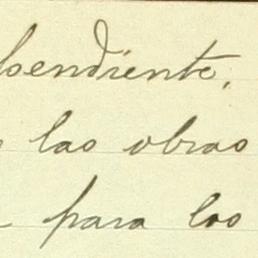 pendiente,
las obras
para los